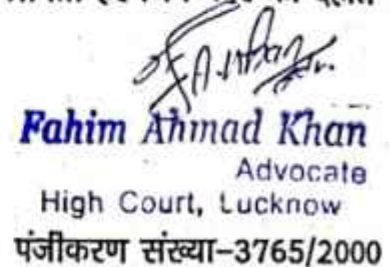 Fahim Ahmad Khan
Advocate
High Court, Lucknow
पंजीकरण संख्या-3765/2000